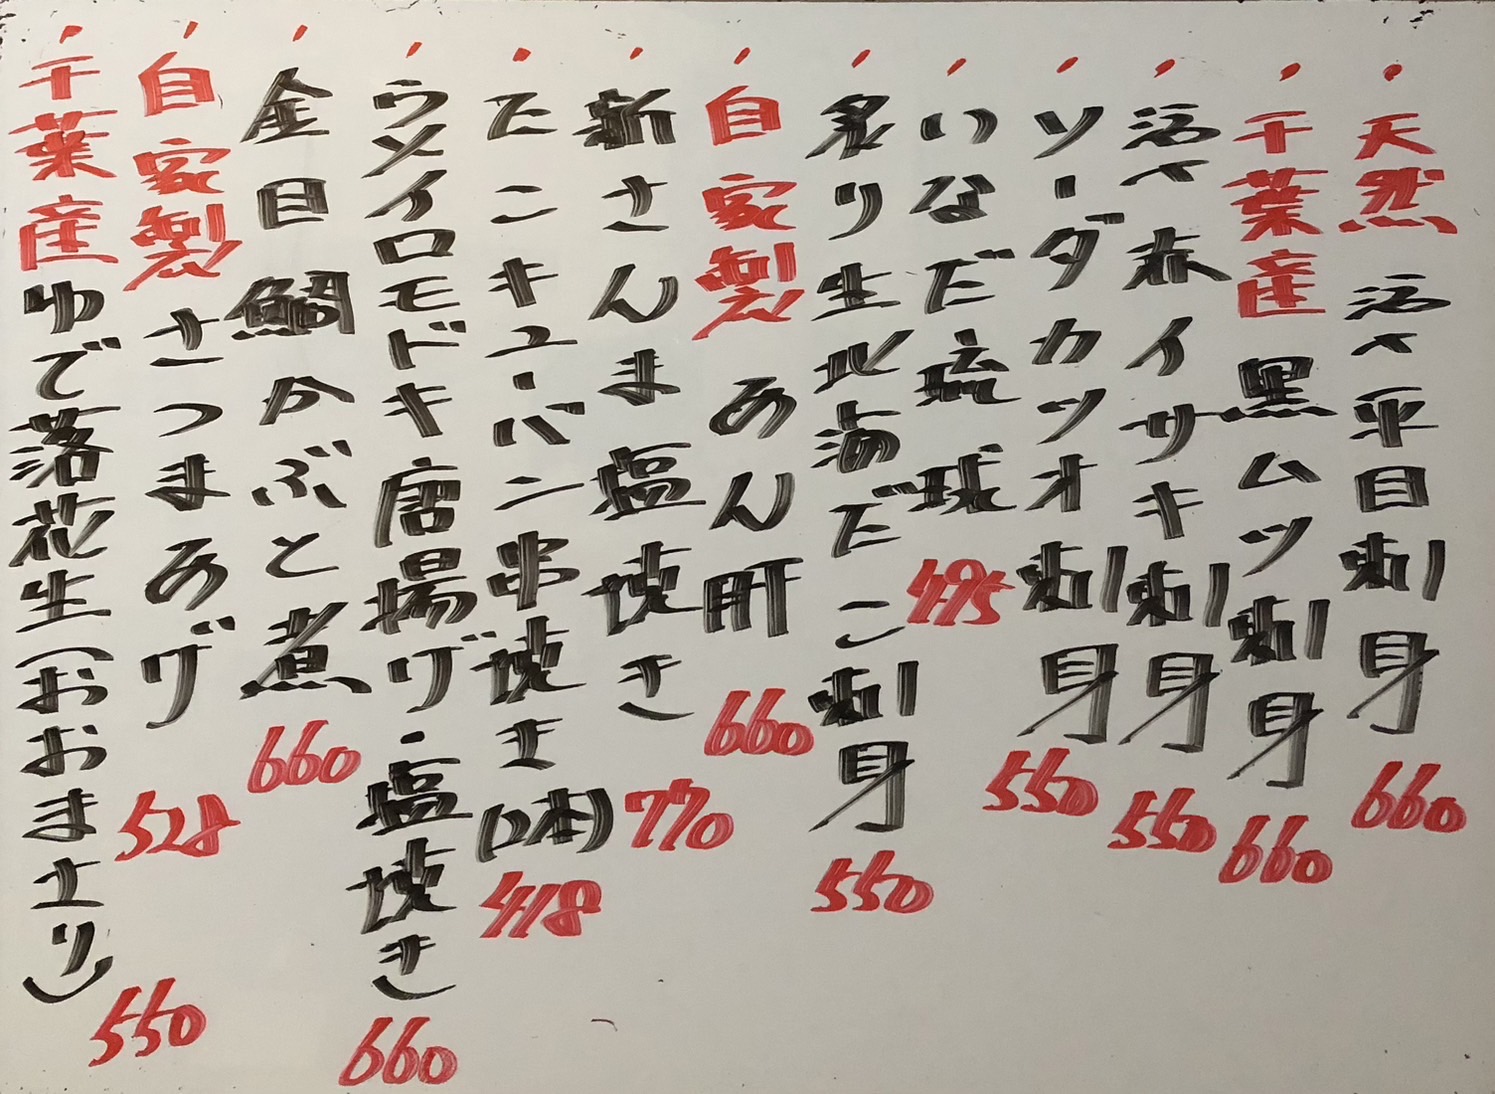 ・天然 活〆平目刺身 660
・千葉産 黒ムツ刺身 660
・活〆赤イサキ刺身 550
・ソーダカツオ刺身 550
・いなだ琉球 495
・炙り生北海だこ刺身 550
・自家製 あん肝 660
・新さんま塩焼き 770
・たこキューバン串焼き(2本) 418
・ウメイロモドキ唐揚げ・塩焼き 660
・金目鯛かぶと煮 660
・自家製さつまあげ 528
・千葉産ゆで落花生(おおまさり) 550